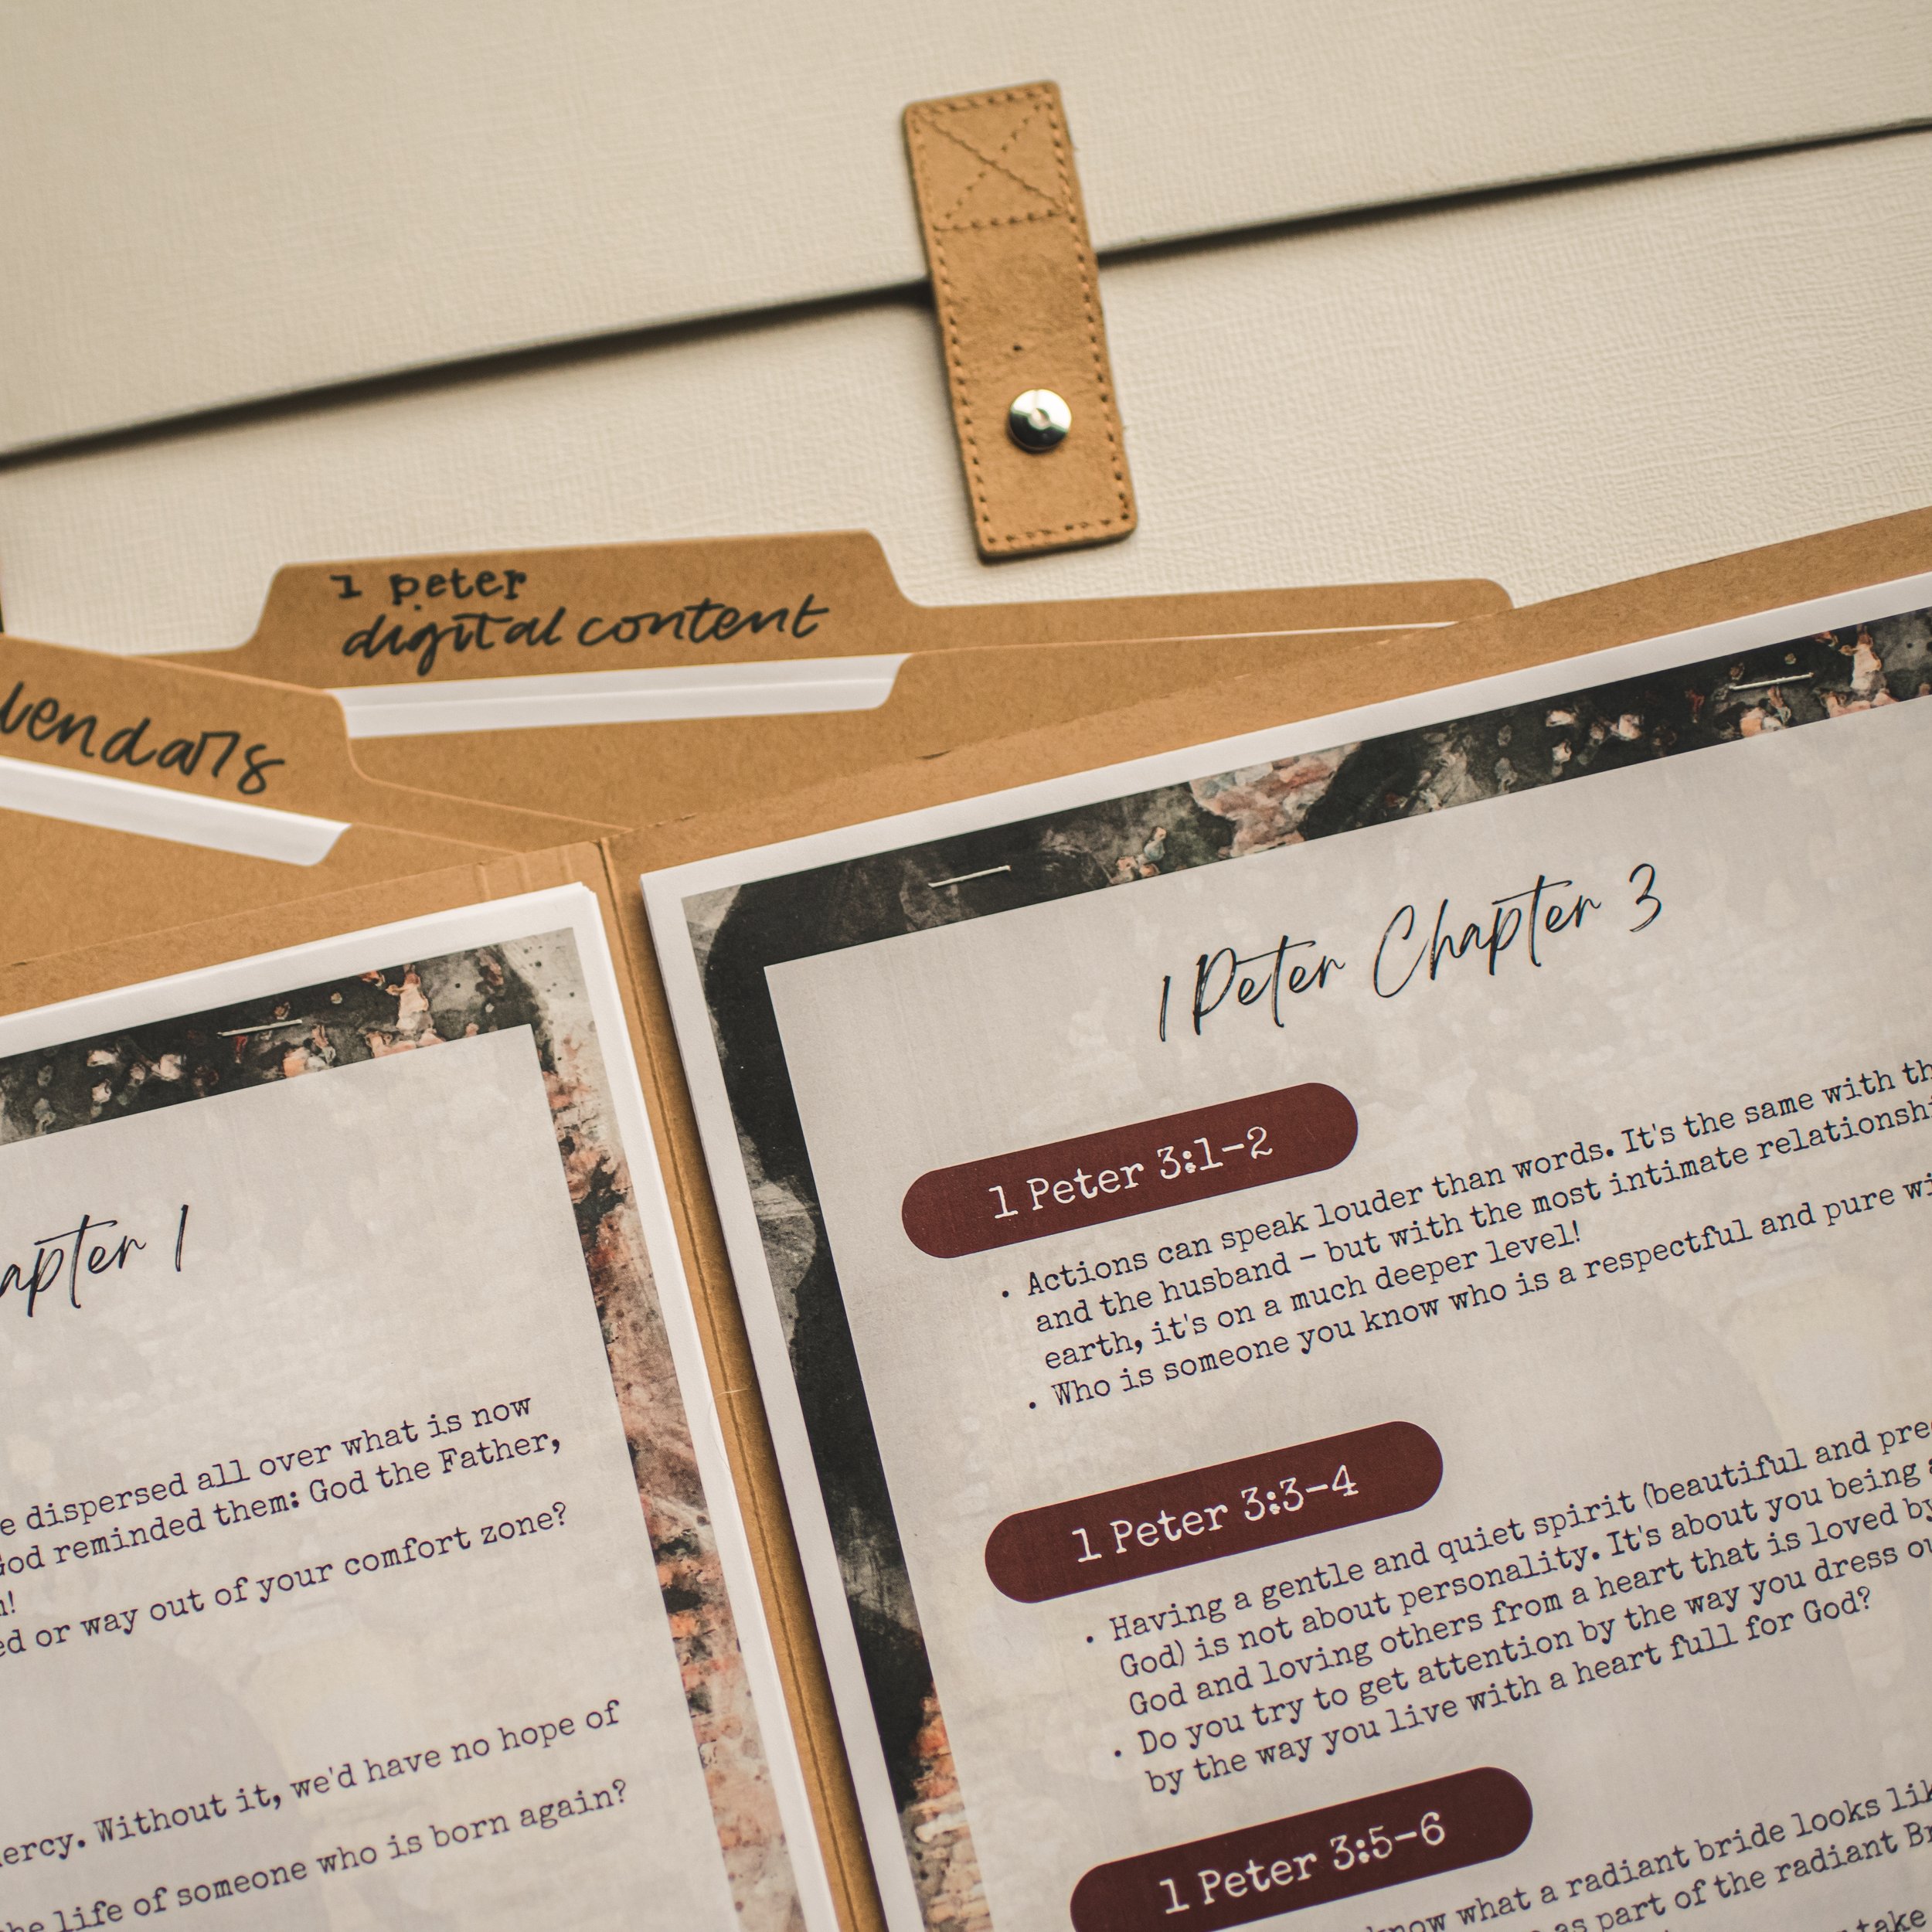 1 peter
digital content
lendars
1 Peter Chapter 3
1 Peter 3:1-2
• Actions can speak louder than words. It's the same with
and the husband - but with the most intimate
earth, it's on a much deeper level!
• Who is someone you know who is a respectful and pure
1 Peter 3:3-4
• Having a gentle and quiet spirit (beautiful and
God) is not about personality. It's about you being
God and loving others from a heart that is loved by
• Do you try to get attention by the way you dress
by the way you live with a heart full for God?
1 Peter 3:5-6
know what a radiant bride looks
as part of the radiant
take
apter 1
e dispersed all over what is now
God reminded them: God the Father,
ed or way out of your comfort zone?
ercy. Without it, we'd have no hope of
he life of someone who is born again?